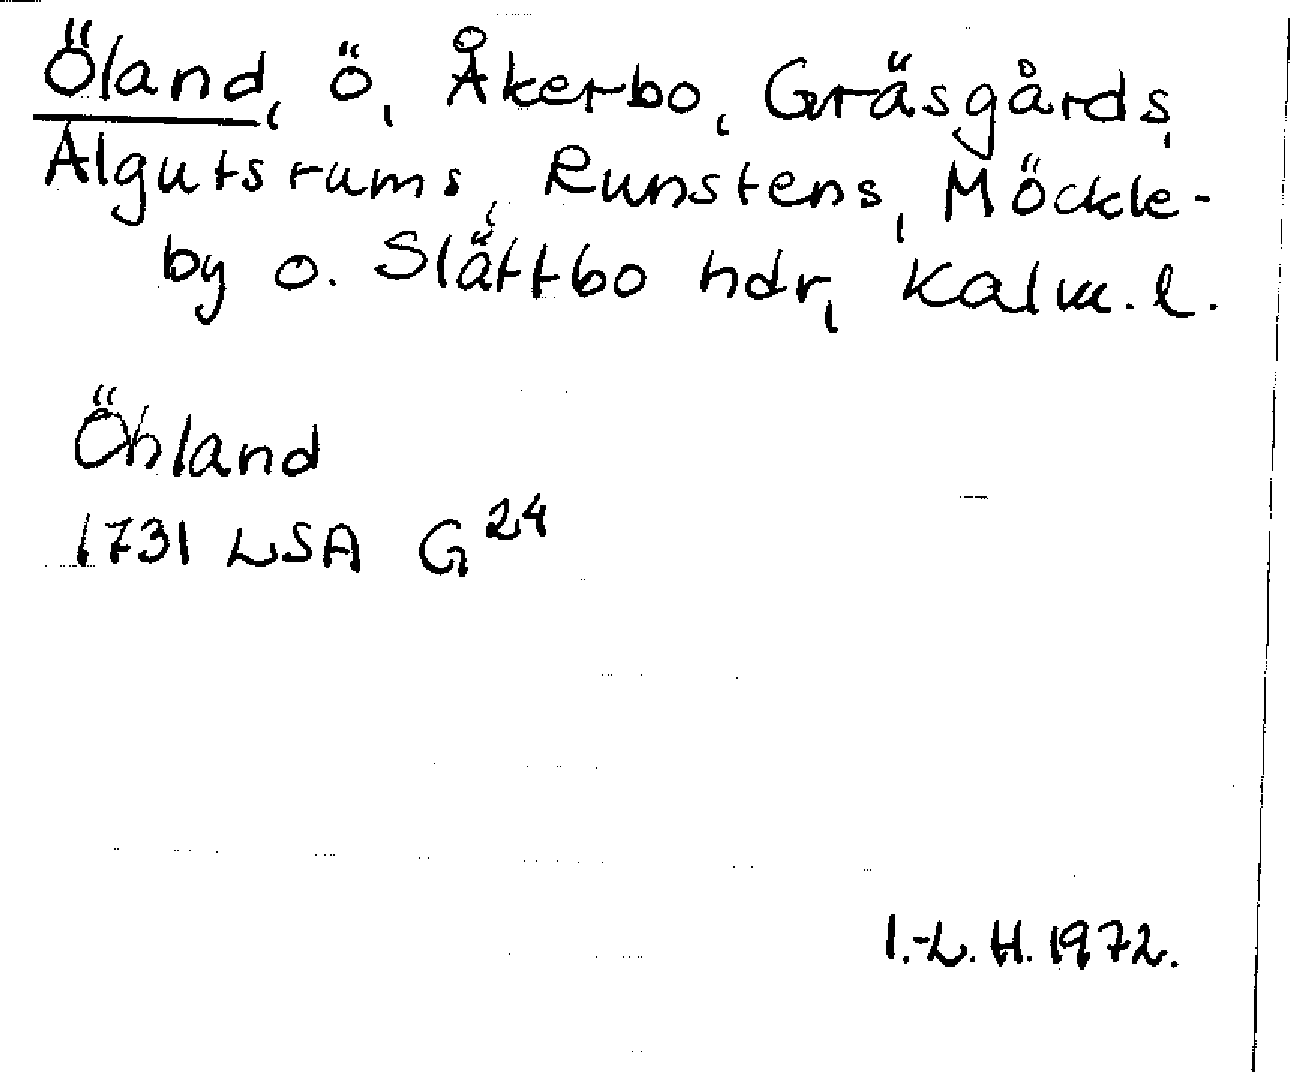 Öland, ö, Åkerbo, Gräsgårds,
Algutsrums, Runstens, Möckle-
by o. Slättbo hdr, Kalm. l.
Öhland
1731 LSA G 24
I.-L. H. 1972.